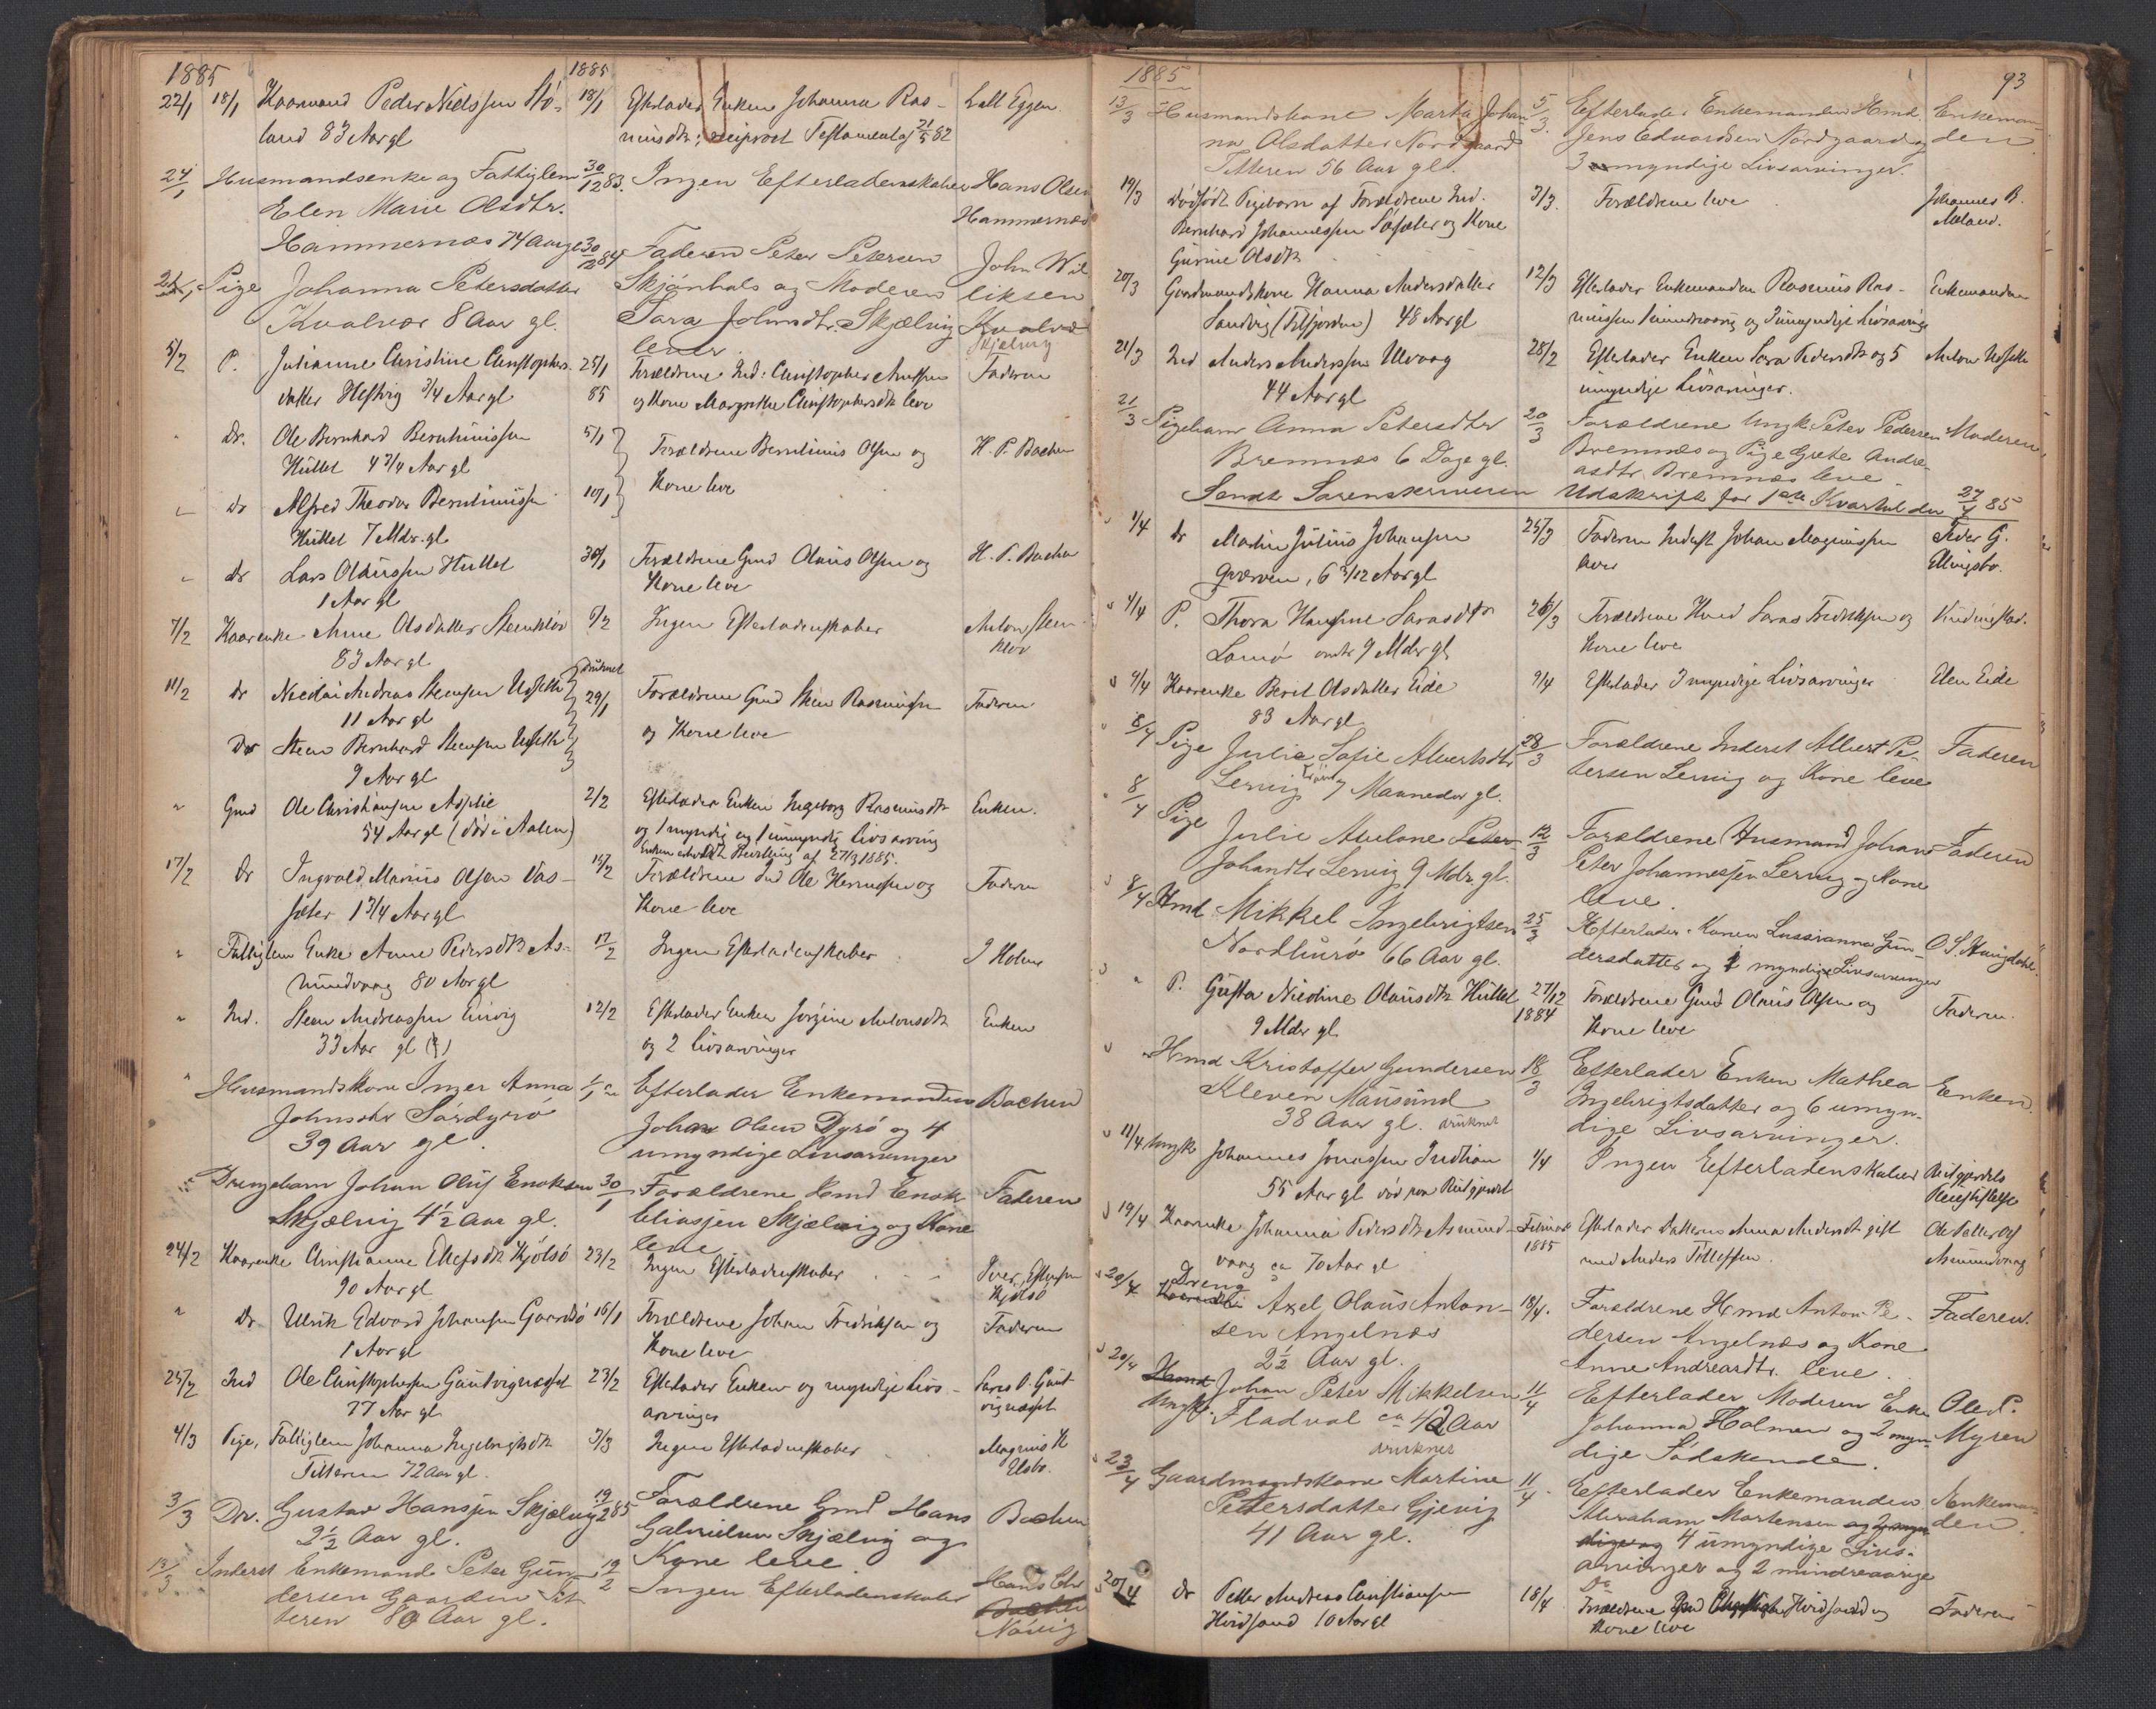 1885
1885
22/1 18/1 Kaarmand Peder Nielssen Stö- 18/1 Efterlader Enken Johanna Ras-
land 83 Aar gl musdtr; reciproct Testament af 21/5 82
24/1 Husmandsenke og Fattiglem 30/12 83. Ingen Efterladenskaber Hans Olsen
Elen Marie Olsdtr. Hammernæs
Hammernæs 74 Aar gl 30/12 84 Faderen Peter Petersen John Wil-
Pige Johanna Petersdatter Skjönhals og Moderen liksen
Kvalvær 8 Aar gl. Sara Johnsdtr. Skjælvig
lever Skjelvig
5/2 P. Julianne Christine Christophers- 25/1 Forældrene Ind: Christopher og Faderen
datter Hestvig 3/4 Aar gl 85 Kone Margrethe Christophersdtr leve
" Dr. Ole Bernhard Berntinussen 5/1 Forældrene Berntinus Olsen og H. P. Bachen
Hüllet 4 3/4 Aar gl Kone leve
Dr Alfred Theodor Berntinussen 10/1
Hüllet 7 Mdr. gl
" dr Lars Olaussen Hüllet 30/1 Forældrene Gmd Olaus Olsen og H. P. Bachen
1 Aar gl Kone leve
7/2 Kaarenke Anne Olsdatter Stenklöv 6/2 Ingen Efterladenskaber Anton Sten-
83 Aar gl klöv
11/2 dr Nicolai Andreas Steensen Ulfseth druknet Forældrene Gmd Steen Rasmussen Faderen
11 Aar gl 29/1 og Kone leve
Dr Steen Bernhard Steensen Ulfseth
9 Aar gl
" Gmd Ole Christiansen Asplie 2/2 Efterlader Enken Ingeborg Rasmusdtr Enken.
54 Aar gl (död i Aalen) og 1 myndig og 1 umyndig Livsarving
Enken erholdt Bevilling af 27/3 1885.
17/2 Dr Ingvald Marius Olsen Vas- 15/2 Forældrene Ind Ole Hermansen og Faderen
sæter 1 3/4 Aar gl Kone leve
" Fattiglem Enke Anne Pedersdtr As- 17/2 Ingen Efterladenskaber J Holm
mundvaag 80 Aar gl
" Ind. Steen Andreassen 12/2 Efterlader Enken Jörgine Antonsdtr Enken
33 Aar gl og 2 Livsarvinger
" Husmandskone Inger Anna Efterlader Enkemanden Bachen
Johnsdtr Sördyrö Johan Olsen Dyrö og 4
39 Aar gl. umyndige Livsarvinger
Drengebarn Johan Oluf Enoksen 30/1 Forældrene Hmd Enok Faderen
Skjælvig 4 1/2 Aar gl. Eliassen Skjælvig og Kone
leve
24/2 Kaarenke Christianne Ellefsdtr Kjölsö 23/2 Ingen Efterladenskaber Iver
90 Aar gl Kjölsö
" dr Ulrik Edvard Johansen 16/1 Forældrene Johan Fredriksen og Faderen
1 Aar gl Kone leve
25/2 Ind Ole Christophersen 23/2 Efterlader Enken og myndige Livs-
77 Aar gl arvinger
4/3 Pige, Fattiglem Johanna Ingebrigtsdtr 3/3 Ingen Efterladenskaber Magnus H
Titteren 72 Aar gl. Elsbo.
3/3 Dr. Gustav Hansen Skjælvig 19/2 85 Forældrene Gmd Hans Bachen
2 1/2 Aar gl. Gabrielsen Skjælvig og
Kone leve.
13/3 Inderst Enkemand Peter Gun- 19/2 Ingen Efterladenskaber Hans Chr
dersen Gaarden Tit- Bachen
teren 80 Aar gl. Növig
1885 93
13/3 Husmandskone Marta Johan- 5/3. Efterlader Enkemanden Hmd. Enkeman-
na Olsdatter Nordgaard Jens Edvardsen Nordgaard og den
Titteren 56 Aar gl. 3 myndige Livsarvinger.
19/3 Dödfödt Pigebarn af Forældrene Ind. 3/3. Forældrene leve Johannes B.
Bernhard Johannessen og Kone Meland.
Gurine Olsdtr
20/3 Gaardmandskone Hanna Andersdatter 12/3 Efterlader Enkemanden Rasmus Ras- Enkemanden
Sandvig (Filfjorden) 48 Aar gl mussen 1 mindreaarig og 3 umyndige Livsarvinger
21/3 Ind Anders Anderssen Ulvaag 28/2 Efterlader Enken Sara Pedersdtr og 5 Anton Ulfseth
44 Aar gl umyndige Livsarvinger.
21/3 Pigebarn Anna Petersdtr 20/3 Forældrene Ungk. Peter Pedersen Moderen
Bremnæs 6 Dage gl. Bremnæs og Pige Grete Andre-
asdtr. Bremnæs leve.
Sendt Sorenskriveren Udskrift for 1ste Kvartal den 27/4 85
1/4 dr Martin Julius Johansen 25/3 Faderen Inderst Johan Magnussen Peder G.
Qværven, 6 3/12 Aar gl lever Ellingsbo.
4/4 P. Thora Hansine Larsdtr 26/3 Forældrene Hmd Lars Fredriksen og
Lamö omtr 9 Mdr gl Kone leve
9/4 Kaarenke Berit Olsdatter Eide 9/4 Efterlader 3 myndige Livsarvinger Elen Eide
83 Aar gl
8/4 Pige Julie Sofie Albertsdtr 28/3 Forældrene Inderst Albert Pe- Faderen
Lervig 7 Maaneder gl. tersen Lervig og Kone leve
8/4 Pige Julie Abelone Peter 12/3 Forældrene Husmand Johan Faderen
Johansdtr Lervig 9 Mdr. gl. Peter Johannessen Lervig og Kone
leve.
8/4 Hmd Mikkel Ingebrigtsen 25/3 Efterlader Konen Lussianna Gun- O. S. Haugdahl.
Nordhurö 66 Aar gl. dersdatter og 1 myndige Livsarvinger
" P. Gusta Nicoline Olausdtr Hüllet 27/12 Forældrene Gmd Olaus Olsen og Faderen.
9 Mdr gl 1884 Kone leve
Hmd Kristoffer Gundersen 18/3 Efterlader Enken Mathea Enken.
Kleven Mausund Ingebrigtsdatter og 6 umyn-
38 Aar gl. druknet dige Livsarvinger.
11/4 Ungk Johannes Jonassen 1/4 Ingen Efterladenskaber Reitgjerdets
55 Aar gl död paa Reitgjerdet Pleiestiftelse
19/4 Kaarenke Johanna Pedersdtr Asmund- Februar Efterlader Datteren Anna Andersdtr gift Ole Petter
vaag ca 70 Aar gl 1885 med Anders Tolleffsen. Asmundvaag
20/4 Dreng Axel Olaus Anton- 18/4. Forældrene Hmd Anton Pe- Faderen.
sen Angelnæs dersen Angelnæs og Kone
2 1/2 Aar gl. Anne Andreasdtr. leve.
20/4 Hmd Ungk. Johan Peter Mikkelsen 11/4 Efterlader Moderen Enke Ole P.
Fladval ca 42 Aar Johanna Holmen og 2 myn- Myren
druknet dige Södskende.
23/4 Gaardmandskone Martine 11/4 Efterlader Enkemanden Enkeman-
Pettersdatter Gjevig Abraham Mortensen og 2 myn den.
41 Aar gl. dige og 4 umyndige Livs-
arvinger og 2 mindreaarige
20/4 dr Petter Andreas Christiansen 18/4 Forældrene Hvidsand og Faderen
Hvidsand 10 Aar gl Kone leve